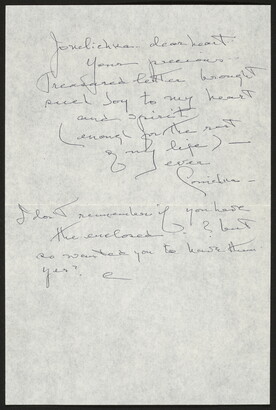 dear heart
Your precious
Treasured letter brought
such joy to my heart
and spirit
(enough for the rest
of my life) —
ever

I don't remember if you have
the enclosed ? ? but
so wanted you to have them
yes?